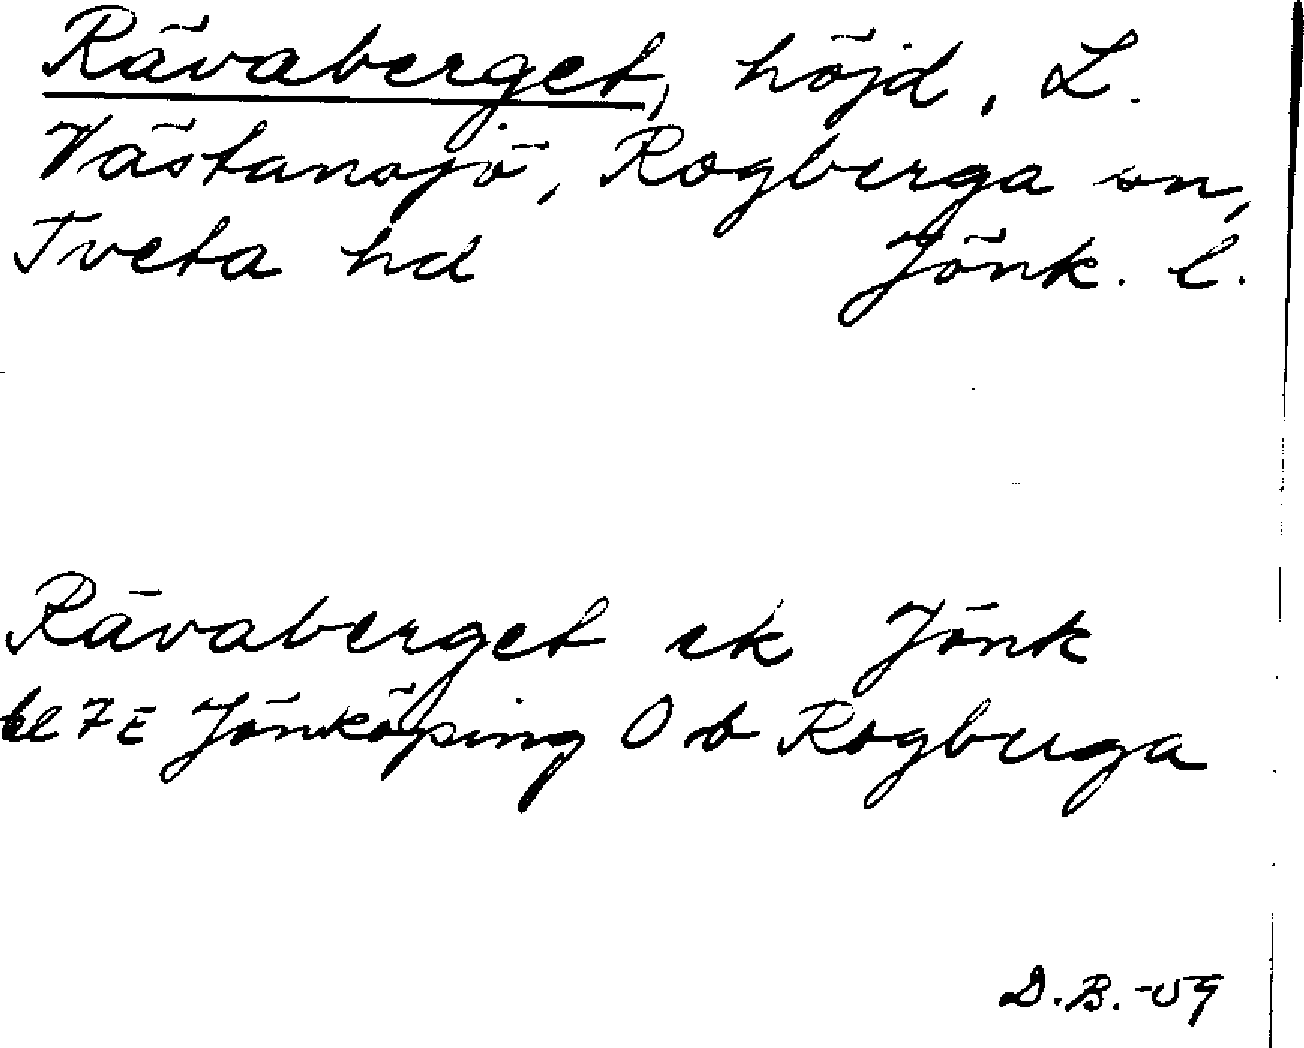 Rävaberget, höjd, L.
Västansjö, Rogberga sn,
Tveta hd Jönk. l.
Rävaberget ek Jönk
bl 7E Jönköping O b Rogberga
D.B. -59